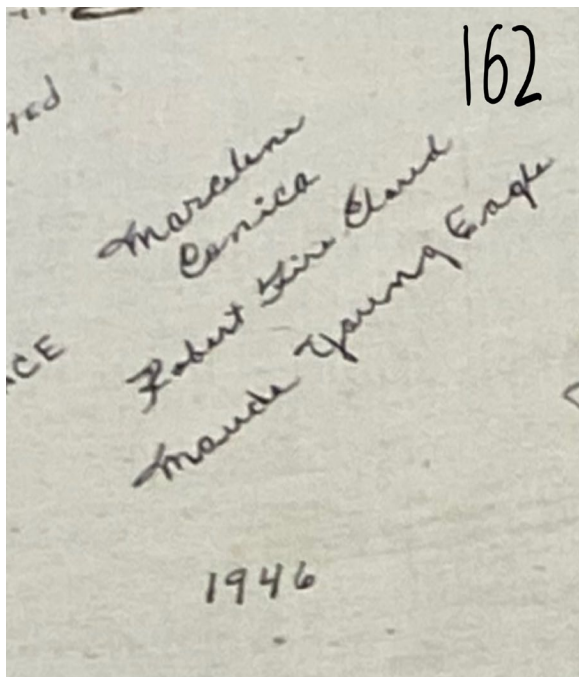 162
ted
Marcelene
Conica
Robert Fire Cloud
Maude Young Eagle
CE
1946